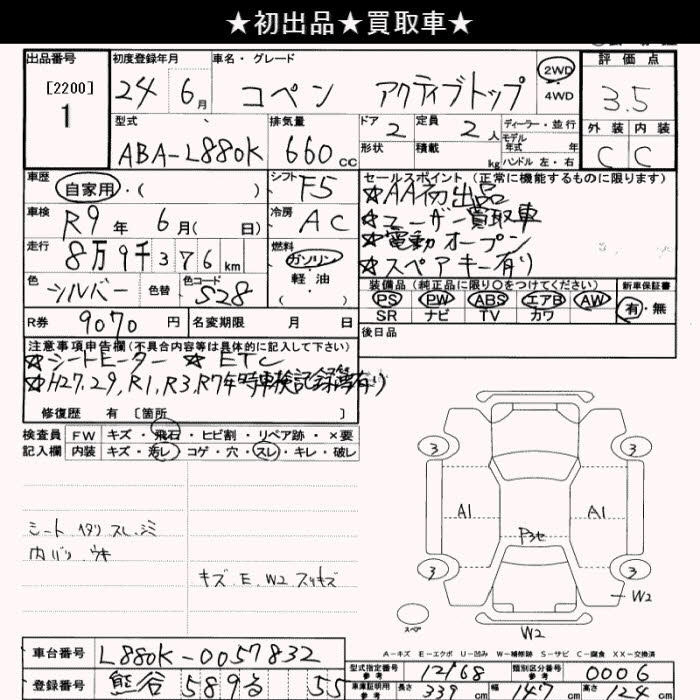 ★初出品★買取車★
出品番号 初度登録年月 車名・グレード 評価点
[2200] 1 24 6月 コペン アクティブトップ 2WD 4WD 3.5
型式 排気量 ドア 2 定員 2人 ディーラー・並行 外装 内装
ABA-L880K 660cc 形状 積載 kg モデル年式 年 ハンドル 左・右 C C
車歴 自家用・( ) シフト F5 セールスポイント(正常に機能するものに限ります)
★AA初出品
車検 R9年 6月( 日) 冷房 AC ★ユーザー買取車
走行 8万9千376km 燃料 ガソリン 軽油 ( ) ★電動オープン
★スペアキー有り
色 シルバー 色替 色コード S28 装備品(純正品に限り○をつけてください) 新車保証書
PS PW ABS エアB AW 有・無
SR ナビ TV カワ
R券 9070円 名変期限 月 日 後日品
注意事項申告欄(不具合内容等は具体的に記入して下さい)
★シートヒーター ★ETC
★H27.29,R1,R3,R7年時車検記録簿有り
修復歴 有 [箇所 ]
検査員 FW キズ・飛石・ヒビ割・リペア跡・×要
記入欄 内装 キズ・汚レ・コゲ・穴・スレ・キレ・破レ
シート ヘタリ スレ.シミ
内バリ ウキ
キズ E W2 スリキズ
3 3
A1 A1
P3セ
3 3
W2
スペア
W2
A-キズ E-エクボ U-凹み W-補修跡 S-サビ C-腐食 XX-交換済
車台番号 L880K-0057832 型式指定番号 参考 12168 類別区分番号 参考 0006
登録番号 熊谷 589 る 55 車庫証明用 参考 長さ 339cm 幅 147cm 高さ 124cm